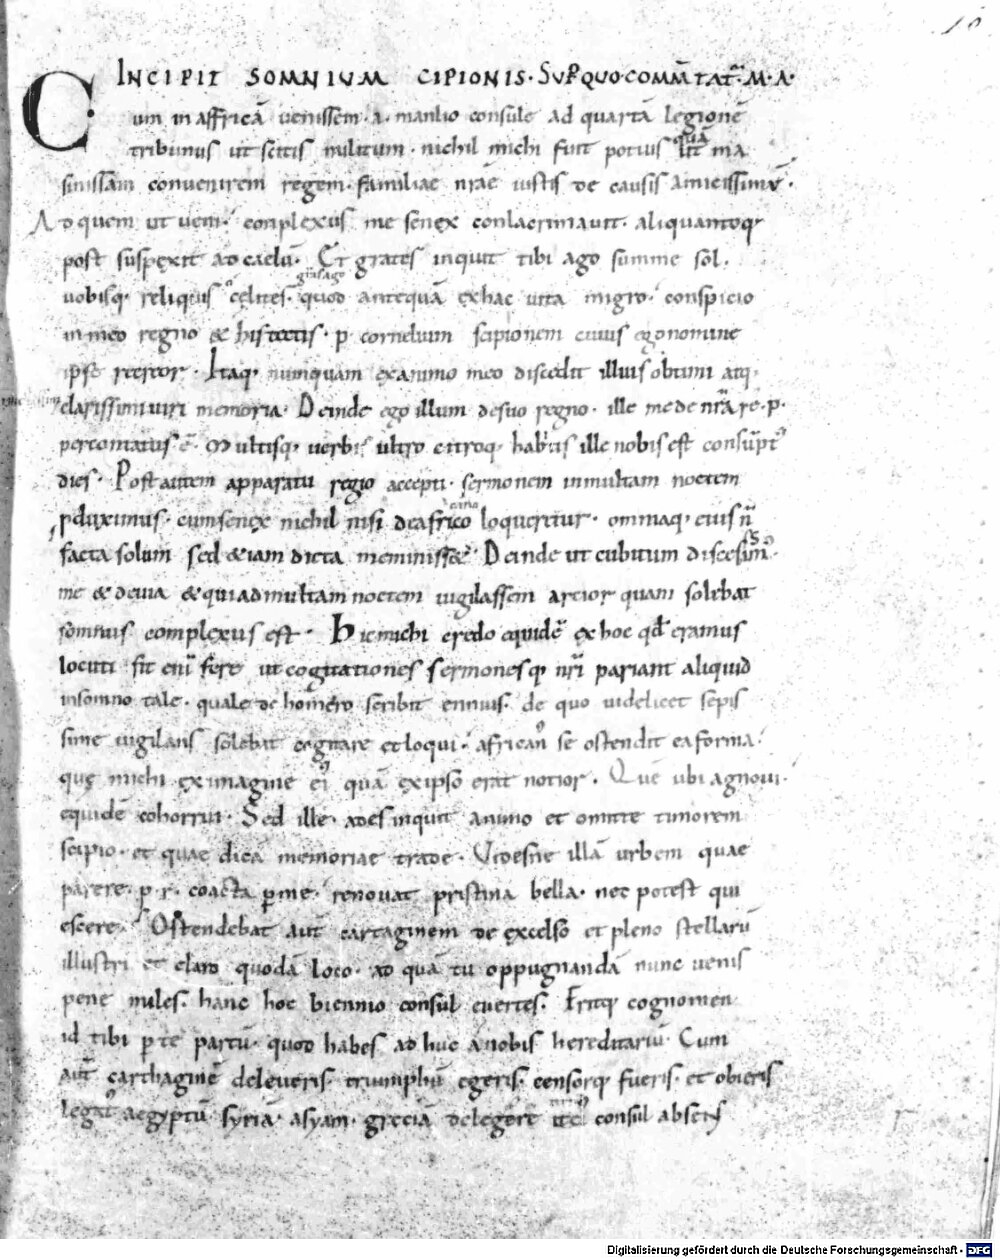 10
INCIPIT SOMNIUM CIPIONIS. SUP QUO COMMTAT M. A.
Cum in affricā uenissem. a. manlio consule ad quartā legionē
tribunus ut scitis militum. nichil michi fuit potius quā ut ma
sinissam conuenirem regem. familiae nr̄ae iustis de causis amicissimū.
Ad quem ut ueni. complexus me senex conlacrimauit. aliquantoq;
post suspexit ad caelū. Et grates inquit tibi ago summe sol.
uobisq; reliquis cęlites. quod antequā ex hac uita migro. conspicio
in meo regno & his tectis. p. cornelium scipionem cuius ego nomine
ipse recreor. Itaq; numquam ex animo meo discedit illius obtimi atq;
clarissimi uiri memoria. Deinde ego illum de suo regno. ille me de nr̄a re. p.
percontatus ē. Multisq; uerbis ultro citroq; habitis ille nobis est consūpt'
dies. Post autem apparatu regio accepti. sermonem in multam noctem
pduximus. cum senex nichil nisi de africano loqueretur. omniaq; eius n̄
facta solum sed & iam dicta meminisset. Deinde ut cubitum discessim'.
me & deuia & qui ad multam noctem uigilassem artior quam solebat
somnus complexus est. Hic michi credo equidē ex hoc qd̄ eramus
locuti. fit enī fere ut cogitationes sermonesq; nr̄i pariant aliquid
insomno tale. quale de homero scribit ennius. de quo uidelicet sepis
sime uigilans solebat cogitare et loqui. african' se ostendit ea forma.
quę michi ex imagine ei' quā ex ipso erat notior. Quē ubi agnoui.
equidē cohorrui. Sed ille. ades inquit animo et omitte timorem
scipio. et quae dicā memoriae trade. Videsne illā urbem quae
parere. p. r. coacta p me. renouat pristina bella. nec potest qui
escere. Ostendebat aūt cartaginem de excelso et pleno stellarū
illustri et claro quodā loco. ad quā tu oppugnandā nunc uenis
pene miles. hanc hoc biennio consul euertes. Eritq; cognomen
id tibi p te partū. quod habes ad huc a nobis hereditariū. Cum
aūt carthaginē deleueris. triumphū egeris. censorq; fueris. et obieris
legat' aegyptū syriā. asyam. greciā deligere consul absens
Digitalisierung gefördert durch die Deutsche Forschungsgemeinschaft - DFG